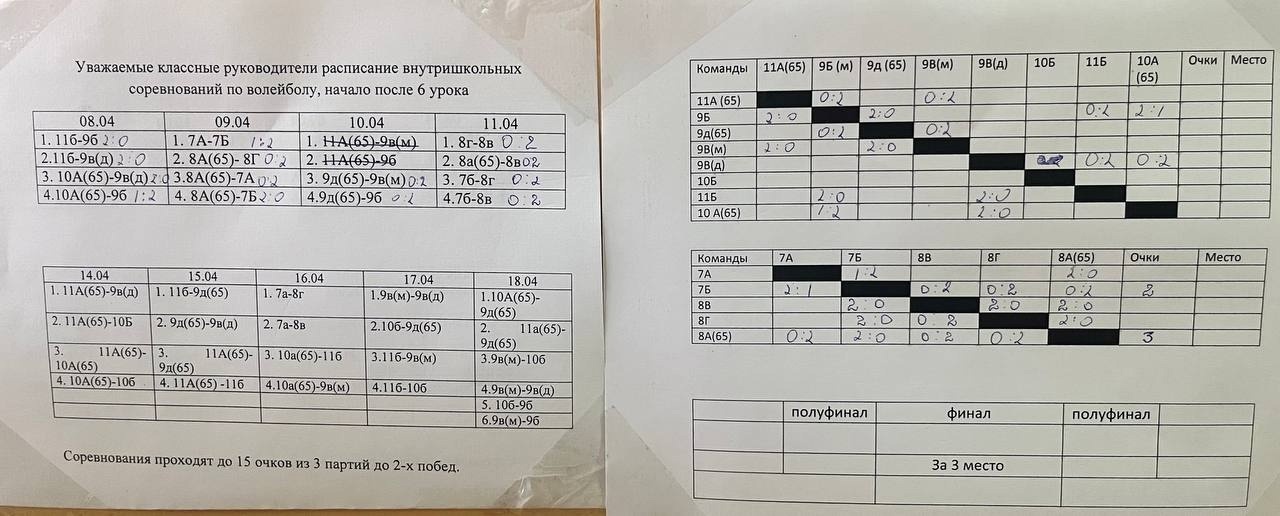 Уважаемые классные руководители расписание внутришкольных
соревнований по волейболу, начало после 6 урока
08.04 09.04 10.04 11.04
1. 11б-9б 2:0 1. 7А-7Б 1:2 1. 11А(65)-9в(м) 1. 8г-8в 0:2
2.11б-9в(д) 2:0 2. 8А(65)- 8Г 0:2 2. 11А(65)-9б 2. 8а(65)-8в 02
3. 10А(65)-9в(д) 2:0 3.8А(65)-7А 0:2 3. 9д(65)-9в(м) 0:2 3. 7б-8г 0:2
4.10А(65)-9б 1:2 4. 8А(65)-7Б 2:0 4.9д(65)-9б 0:2 4.7б-8в 0:2
14.04 15.04 16.04 17.04 18.04
1. 11А(65)-9в(д) 1. 11б-9д(65) 1. 7а-8г 1.9в(м)-9в(д) 1.10А(65)-
9д(65)
2. 11А(65)-10Б 2. 9д(65)-9в(д) 2. 7а-8в 2.10б-9д(65) 2. 11а(65)-
9д(65)
3. 11А(65)- 3. 11А(65)- 3. 10а(65)-11б 3.11б-9в(м) 3.9в(м)-10б
10А(65) 9д(65)
4. 10А(65)-10б 4. 11А(65) -11б 4.10а(65)-9в(м) 4.11б-10б 4.9в(м)-9в(д)
5. 10б-9б
6.9в(м)-9б
Соревнования проходят до 15 очков из 3 партий до 2-х побед.
Команды 11А(65) 9Б (м) 9д (65) 9В(м) 9В(д) 10Б 11Б 10А Очки Место
(65)
11А (65) 0:2 0:2
9Б 2:0 2:0 0:2 2:1
9д(65) 0:2 0:2
9В(м) 2:0 2:0
9В(д) 0:2 0:2
10Б
11Б 2:0 2:0
10 А(65) 1:2 2:0
Команды 7А 7Б 8В 8Г 8А(65) Очки Место
7А 1:2 2:0
7Б 2:1 0:2 0:2 0:2 2
8В 2:0 2:0 2:0
8Г 2:0 0:2 2:0
8А(65) 0:2 2:0 0:2 0:2 3
полуфинал финал полуфинал
За 3 место